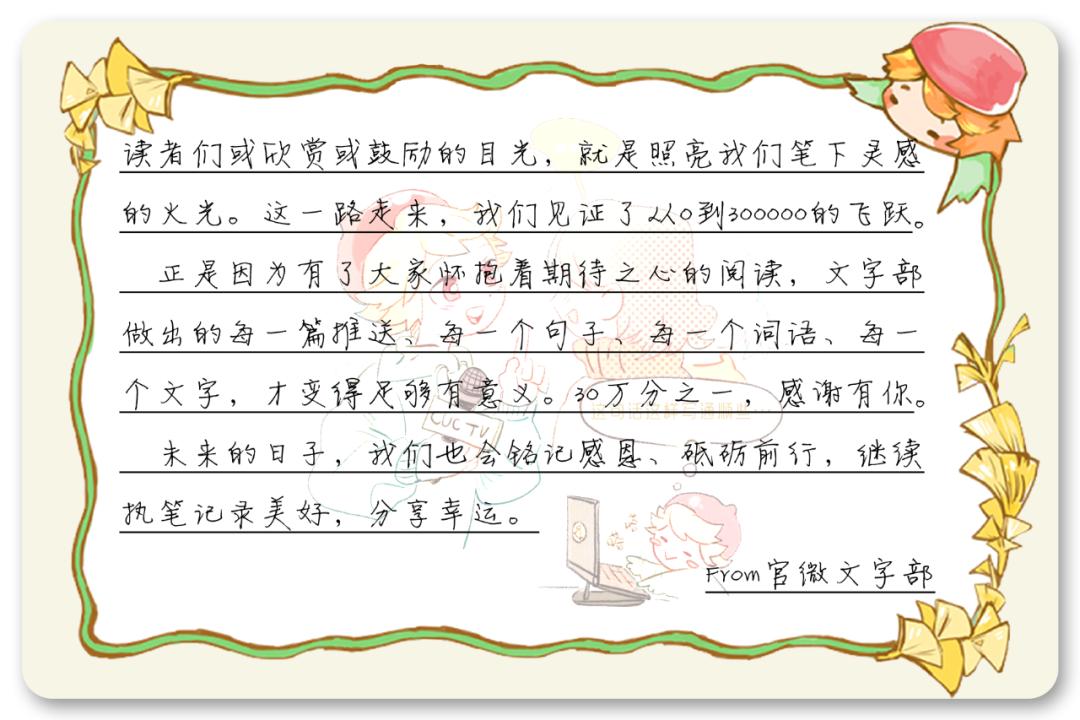 读者们或欣赏或鼓励的目光，就是照亮我们笔下灵感
的火光。这一路走来，我们见证了从0到300000的飞跃。
正是因为有了大家怀抱着期待之心的阅读，文字部
做出的每一篇推送、每一个句子、每一个词语、每一
个文字，才变得足够有意义。30万分之一，感谢有你。
未来的日子，我们也会铭记感恩、砥砺前行，继续
执笔记录美好，分享幸运。
From官微文字部
CUC TV
这句话这样写通顺些…